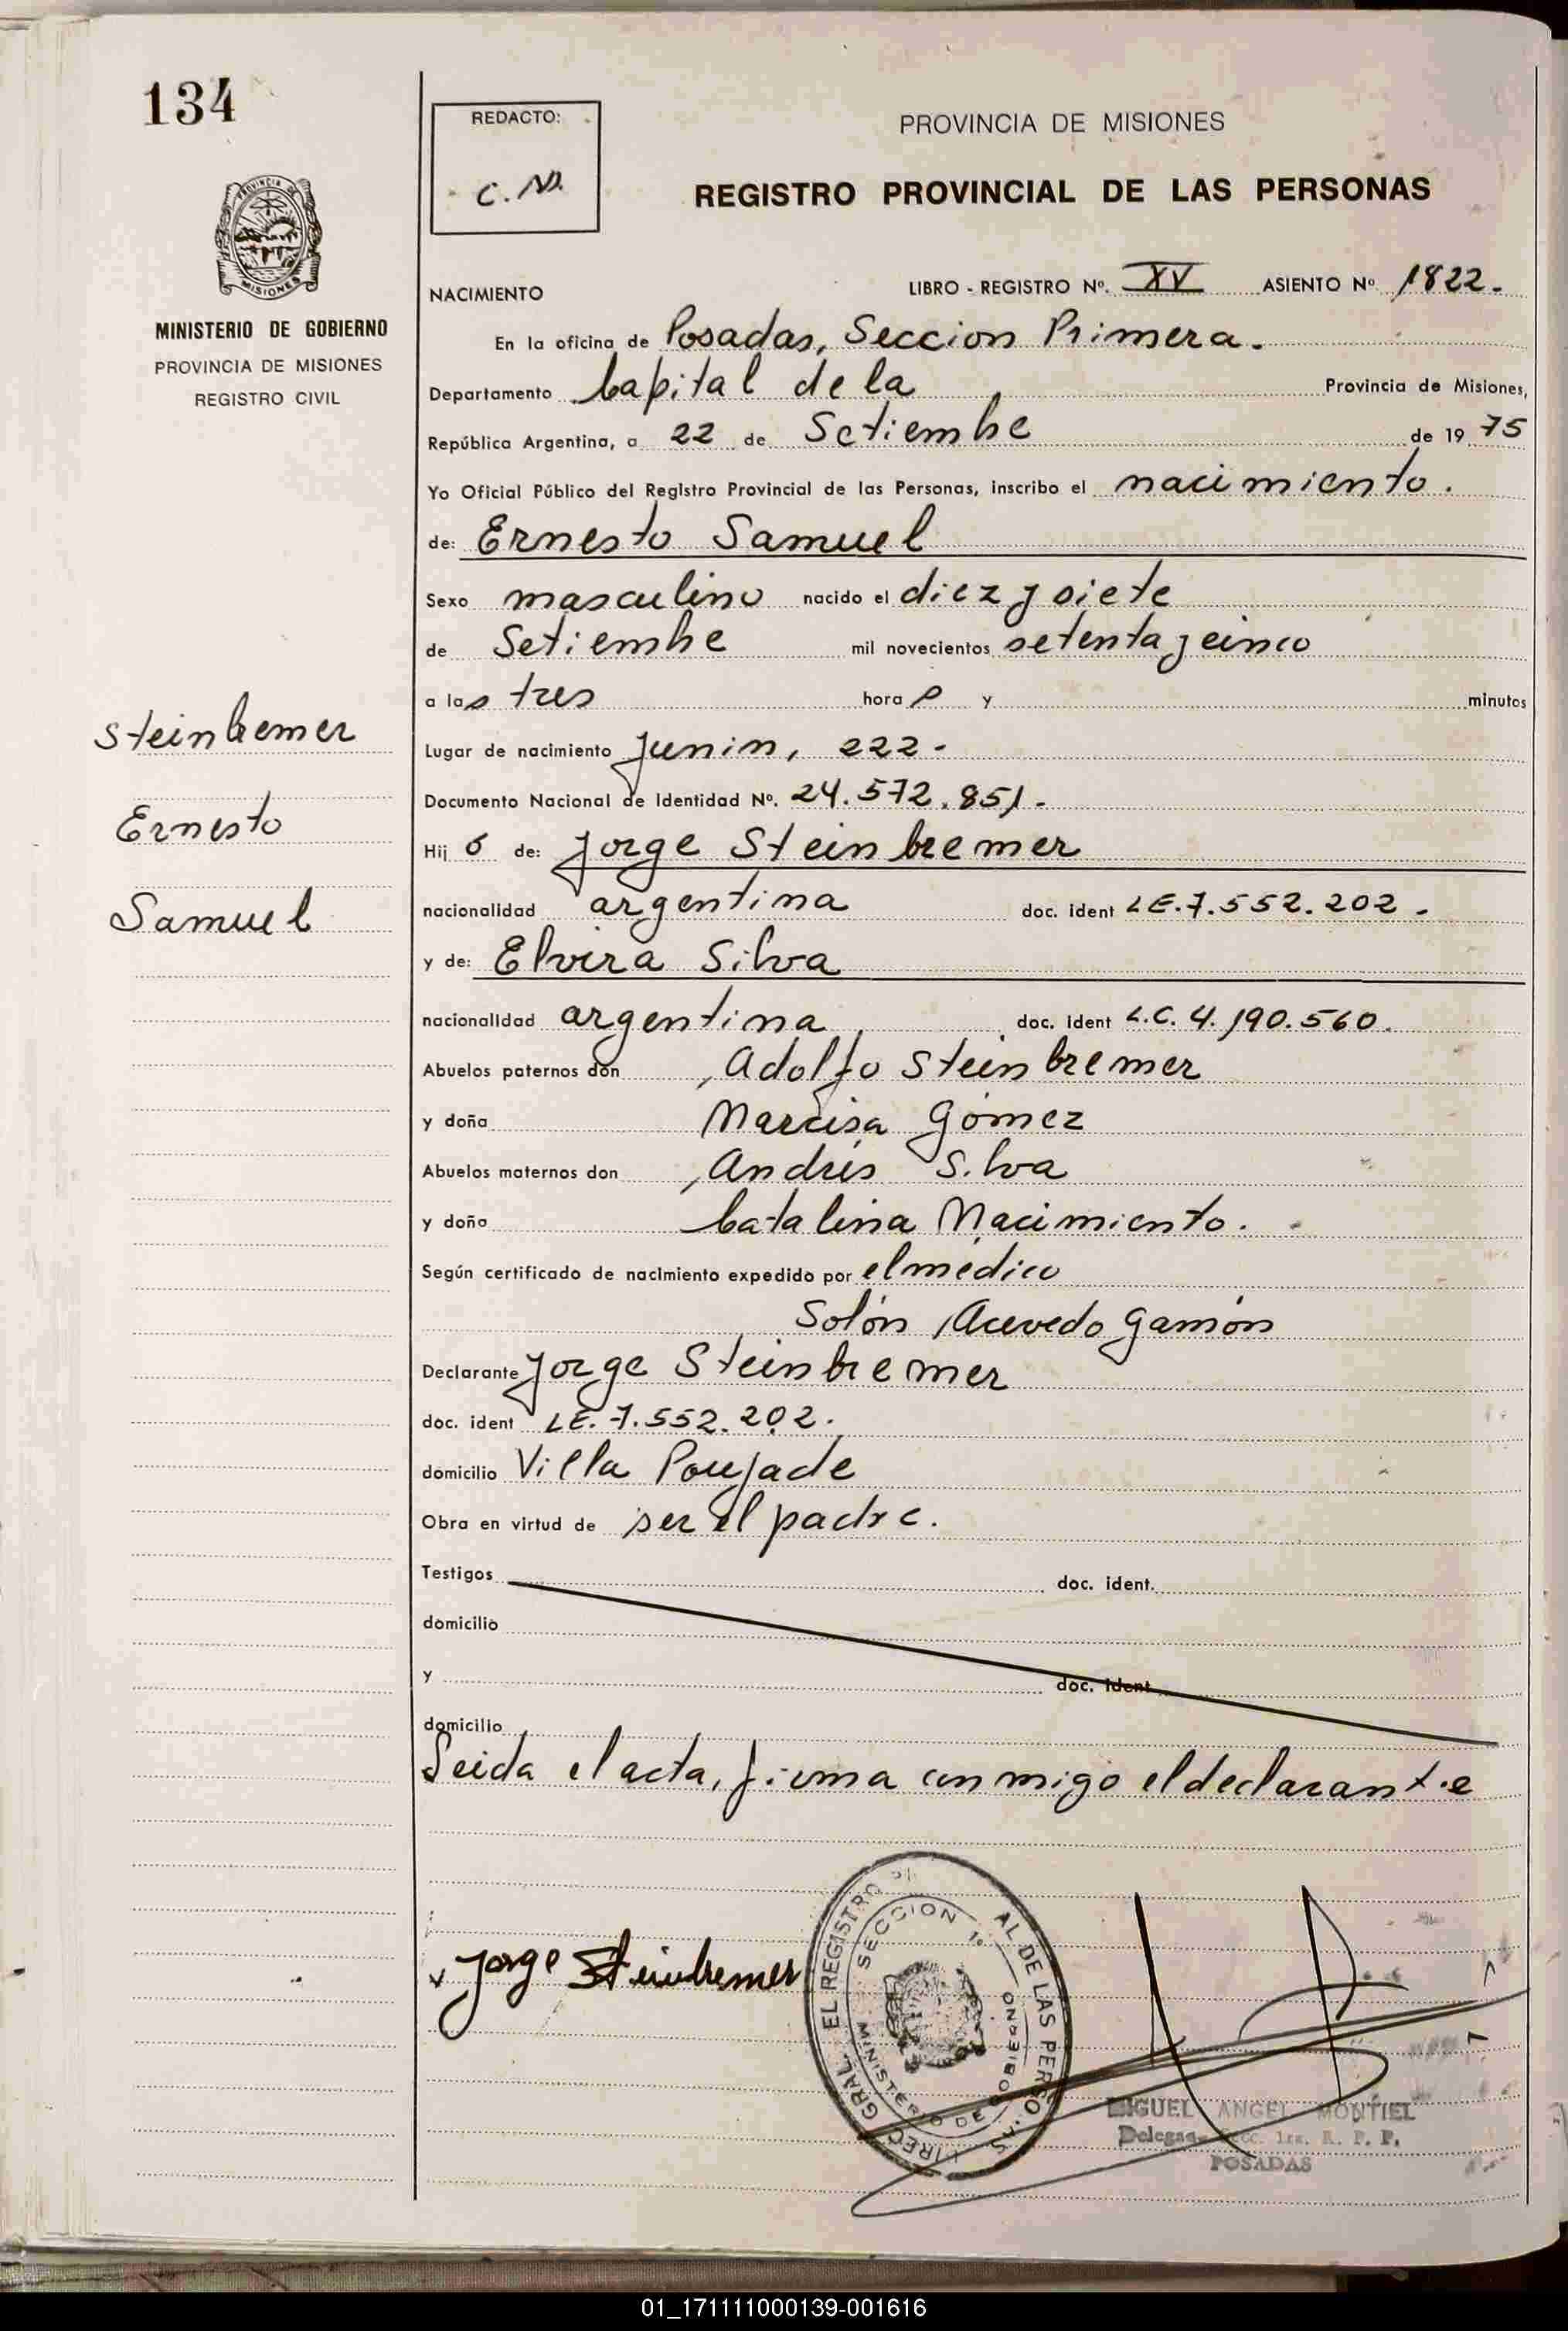 134
REDACTO:
C. N.
PROVINCIA DE MISIONES
REGISTRO PROVINCIAL DE LAS PERSONAS
MISIONES
MINISTERIO DE GOBIERNO
PROVINCIA DE MISIONES
REGISTRO CIVIL
NACIMIENTO LIBRO - REGISTRO Nº. XV ASIENTO Nº 1822.-
En la oficina de Posadas, Seccion Primera.
Departamento Capital de la Provincia de Misiones,
República Argentina, a 22 de Setiembre de 19 75
Yo Oficial Público del Registro Provincial de las Personas, inscribo el nacimiento.
de: Ernesto Samuel
Sexo masculino nacido el diez y siete
de Setiembre mil novecientos setenta y cinco
a las tres hora s y minutos
Steinbremer
Lugar de nacimiento Junin, 222-
Documento Nacional de Identidad Nº. 24.572.851.-
Ernesto
Hij o de: Jorge Steinbremer
Samuel
nacionalidad argentina doc. ident LE.7.552.202.-
y de: Elvira Silva
nacionalidad argentina doc. ident L.C. 4.190.560.
Abuelos paternos don Adolfo Steinbremer
y doña Narcisa Gómez
Abuelos maternos don Andrés Silva
y doña Catalina Nacimiento.-
Según certificado de nacimiento expedido por el médico
Solón Acevedo Gamón
Declarante Jorge Steinbremer
doc. ident LE. 7.552.202.
domicilio Villa Poujade
Obra en virtud de ser el padre.
Testigos doc. ident.
domicilio
y doc. ident
domicilio
Leida el acta, firma conmigo el declarante
Jorge Steinbremer
SECCION 1º
MINISTERIO DE GOBIERNO
MIGUEL ANGEL MONTIEL
Secc. 1ra. R. P. P.
POSADAS
01_171111000139-001616